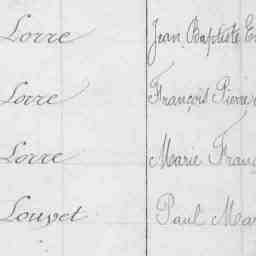 Lorre Jean Baptiste E
Lorre François Pierre
Lorre Marie Franç
Louvet Paul Mar